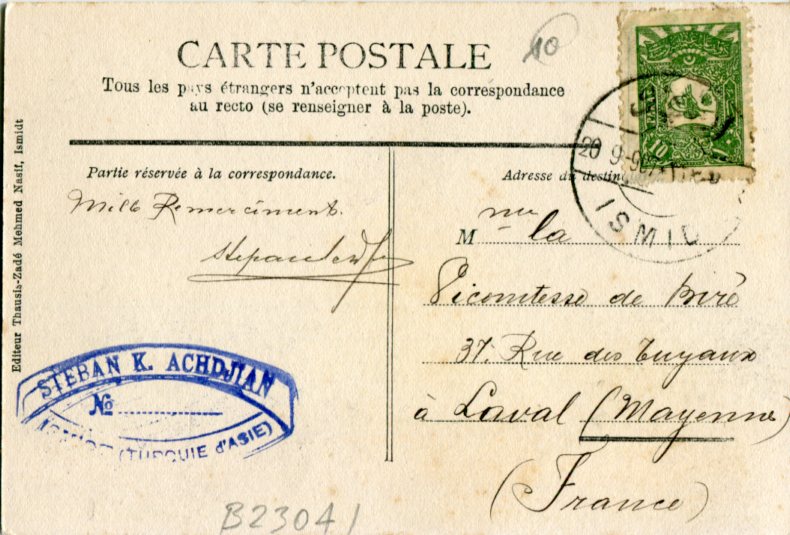 CARTE POSTALE
10
Tous les pays étrangers n'acceptent pas la correspondance
au recto (se renseigner à la poste).
Editeur Thausia-Zadé Mehmed Nasif, Ismidt
Partie réservée à la correspondance.
Mille Remerciment.
STEBAN K. ACHDJIAN
No
(TURQUIE d'ASIE)
B23041
10
ISMID
Adresse du
M me la
Vicomtesse de Biré
37. Rue des Tuyaux
à Laval (Mayenne)
(France)